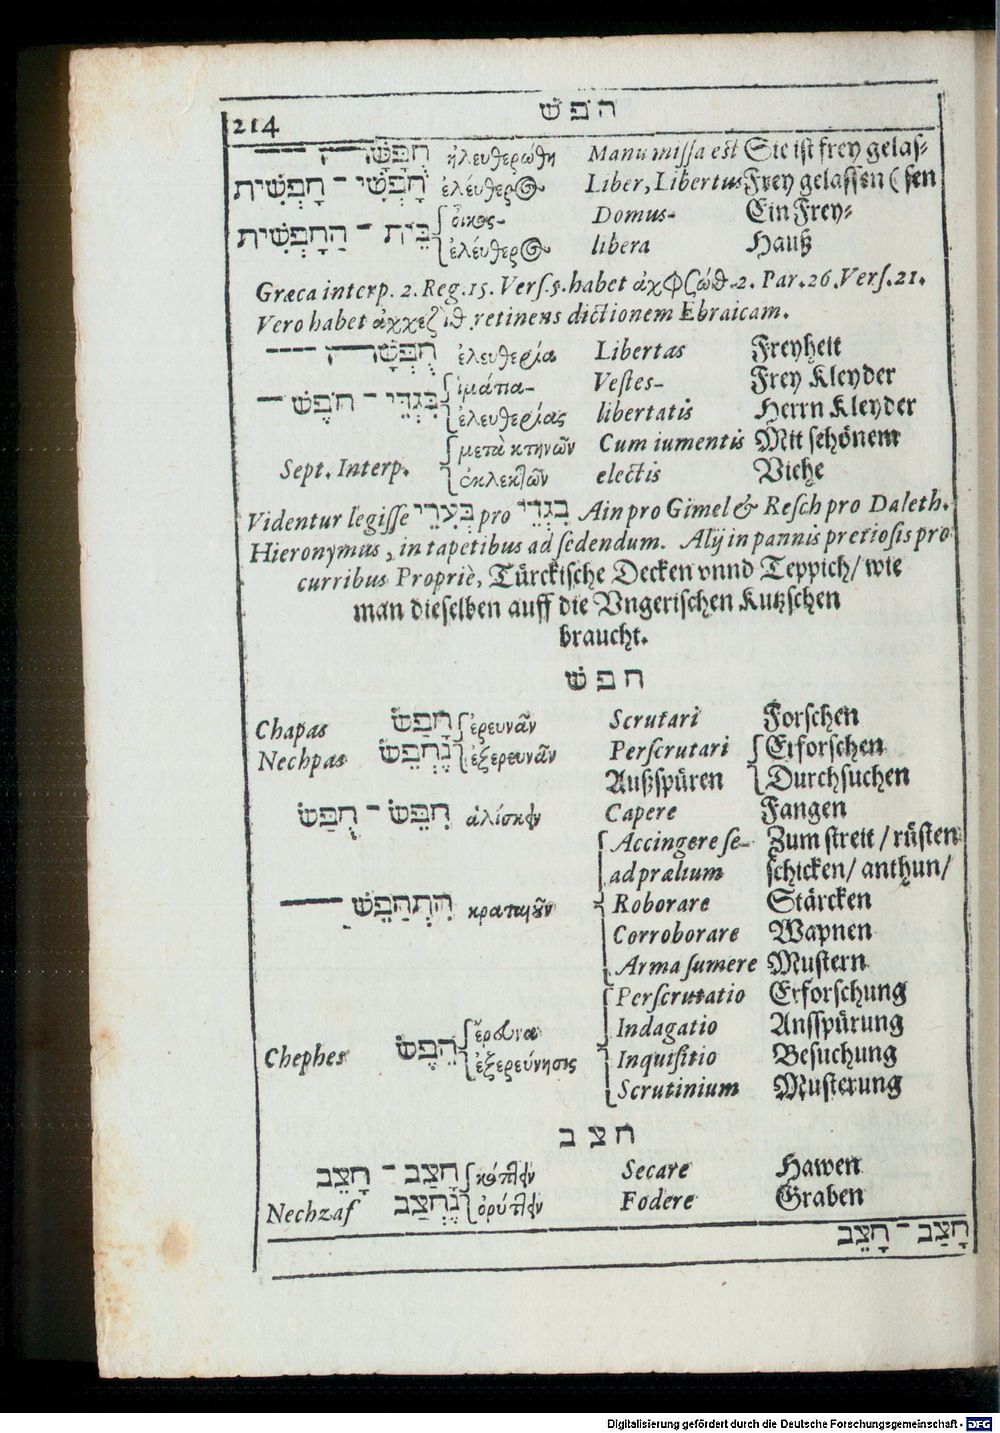 214
ח פ שׁ
חֻפָּשָׁה ἠλευθερώθη Manu missa est Sie ist frey gelas-
חָפְשִׁי - חָפְשִׁית ἐλεύθερος Liber, Libertus Frey gelassen ( sen
בֵּית - הַחָפְשִׁית οἶκος- Domus- Ein Frey-
ἐλεύθερος libera Hauß
Græca interp. 2. Reg. 15. Vers. 5. habet ἀχφζώθ. 2. Par. 26. Vers. 21.
Vero habet retinens dictionem Ebraicam.
חֻפְשָׁה ἐλευθερία Libertas Freyheit
בִּגְדֵי - חֹפֶשׁ ἱμάτια- Vestes- Frey Kleyder
ἐλευθερίας libertatis Herrn Kleyder
μετὰ κτηνῶν Cum iumentis Mit schönem
Sept. Interp. ἐκλεκτῶν electis Viehe
Videntur legisse בְּעִרֵי pro בִגְדֵי Ain pro Gimel & Resch pro Daleth.
Hieronymus, in tapetibus ad sedendum. Alij in pannis pretiosis pro
curribus Propriè, Türckische Decken vnnd Teppich/ wie
man dieselben auff die Vngerischen Kutzschen
braucht.
ח פ שׂ
Chapas חָפַשׂ ἐρευνᾶν Scrutari Forschen
Nechpas נֶחְפַּשׂ ἐξερευνᾶν Perscrutari Erforschen
Außspüren Durchsuchen
חִפֵּשׂ - חֻפַּשׂ ἁλίσκειν Capere Fangen
Accingere se- Zum streit / rüsten
ad prælium schicken/ anthun/
הִתְחַפֵּשׂ κραταιοῦν Roborare Stärcken
Corroborare Wapnen
Arma sumere Mustern
Perscrutatio Erforschung
ἔρευνα Indagatio Ansspürung
Chephes חֵפֶשׂ ἐξερεύνησις Inquisitio Besuchung
Scrutinium Musterung
ח צ ב
חָצַב - חָצֵב κόπτειν Secare Hawen
Nechzaf נֶחְצַב ὀρύττειν Fodere Graben
חָצַב - חָצֵב
Digitalisierung gefördert durch die Deutsche Forschungsgemeinschaft - DFG